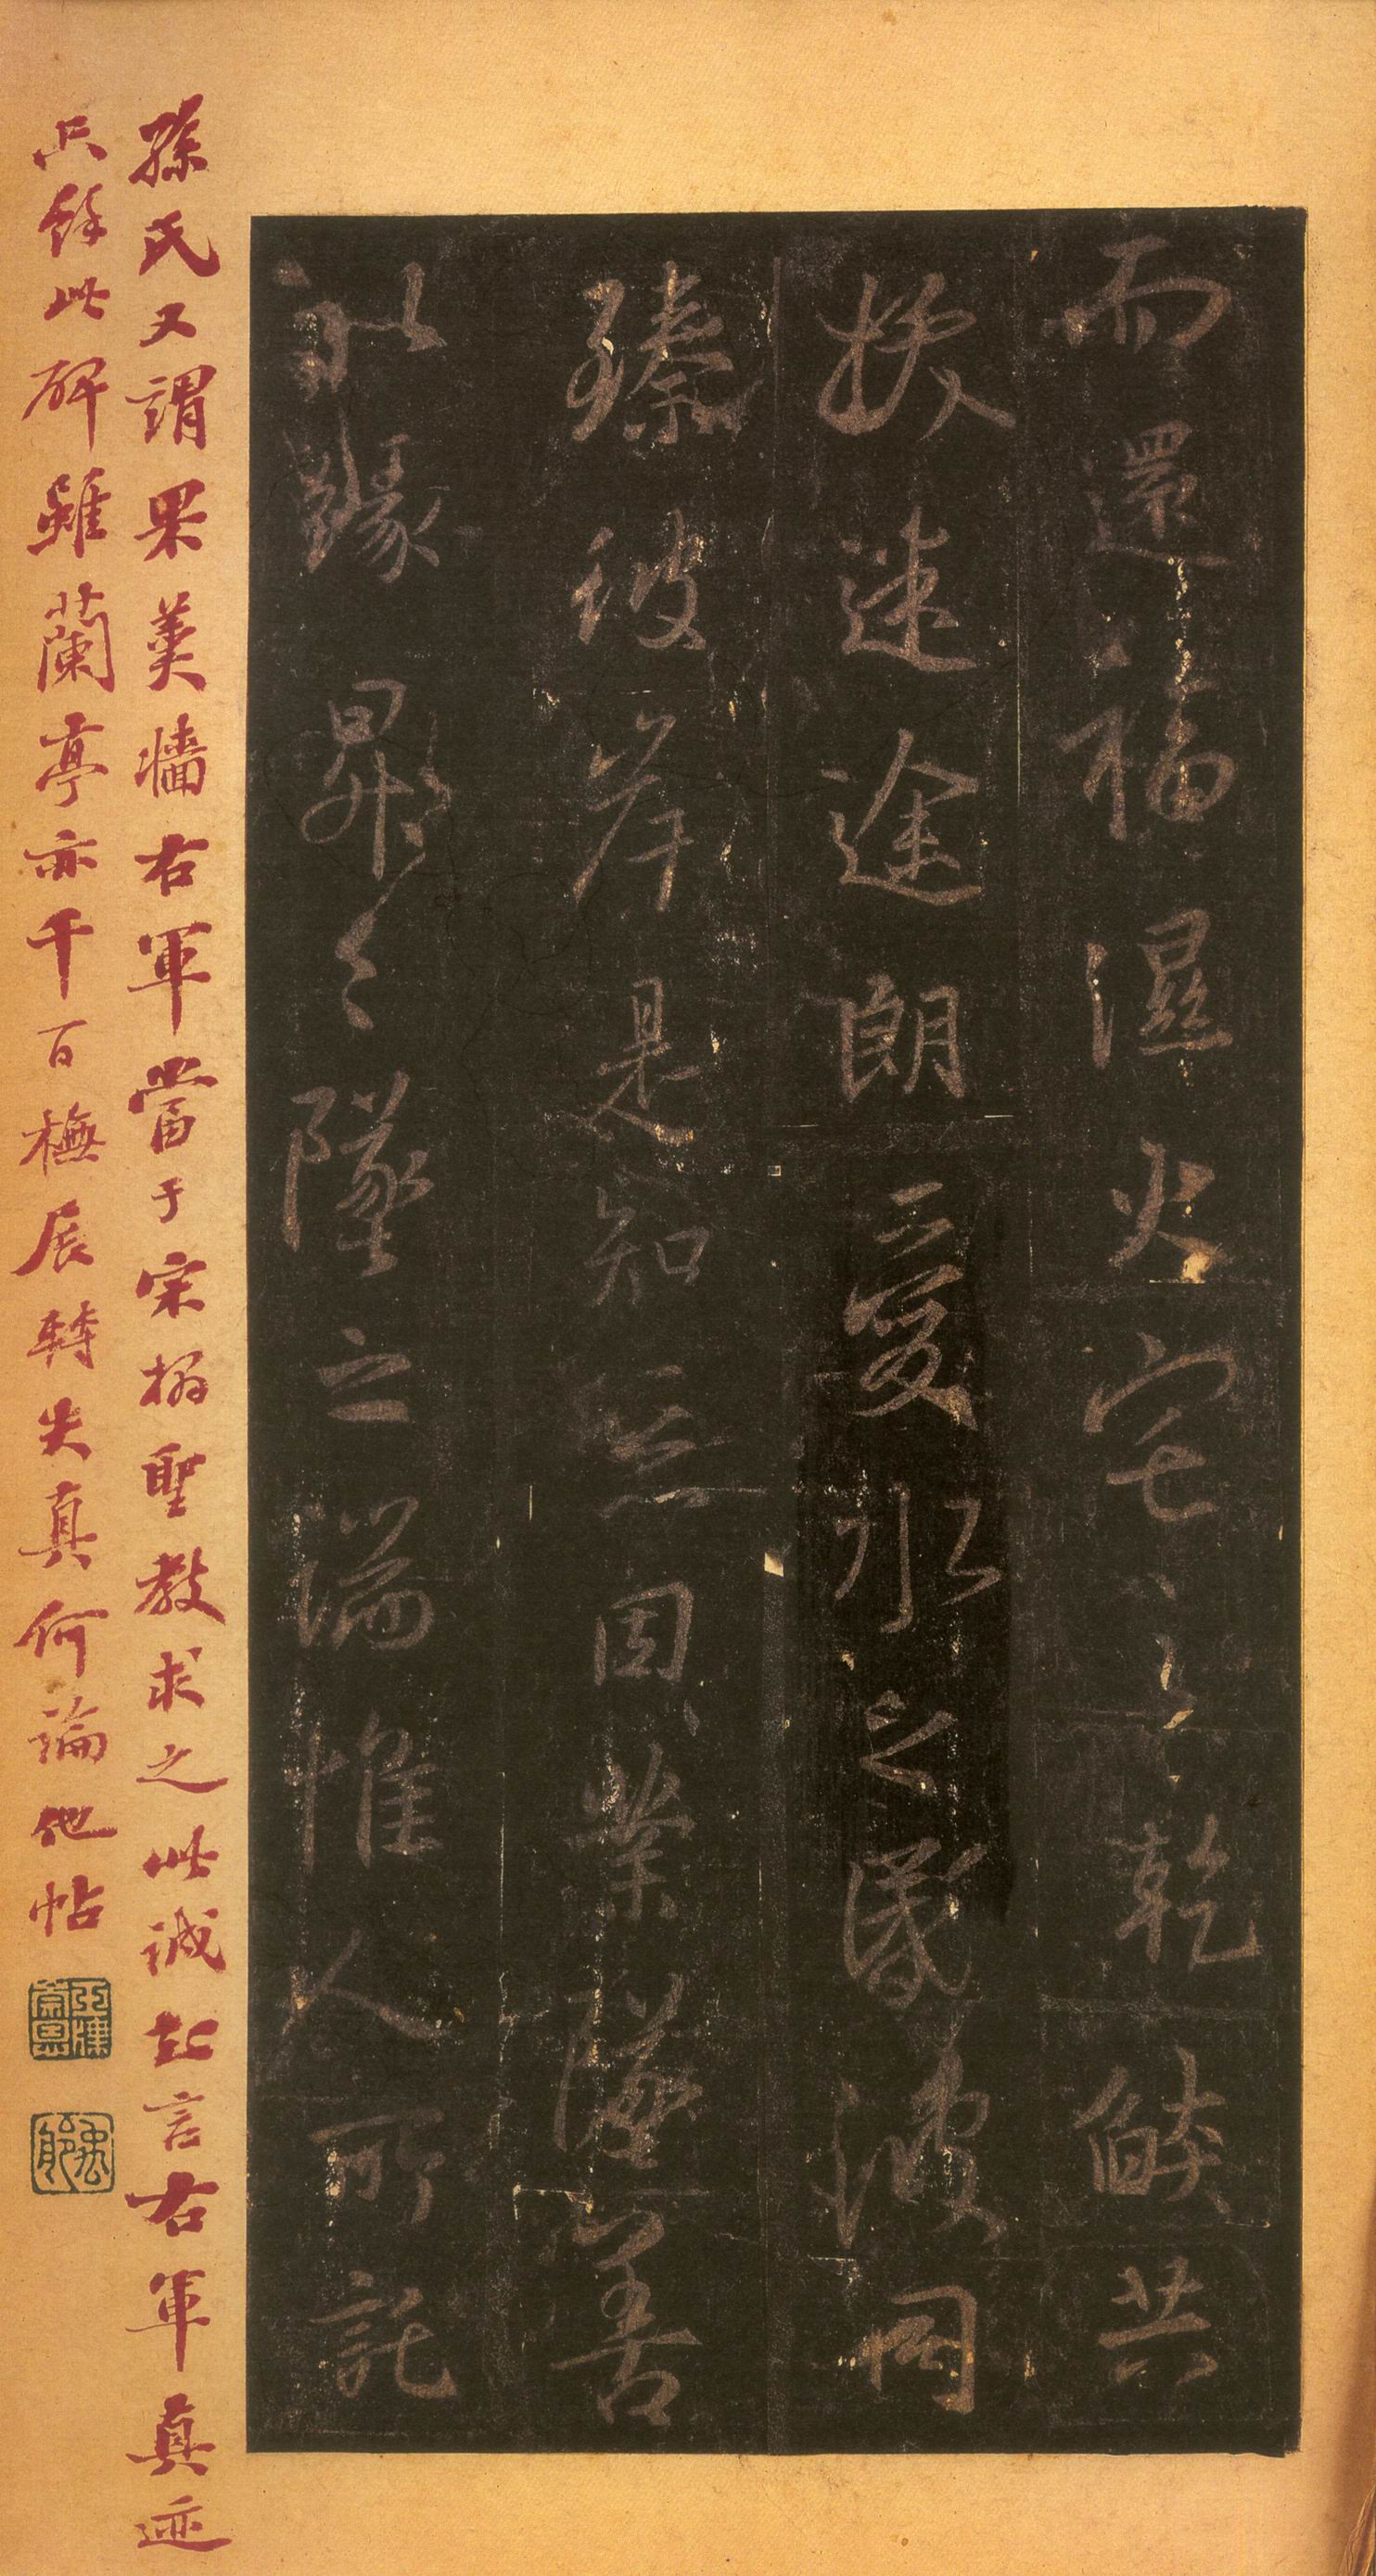 而還福濕火宅之乾燄共
拔迷途朗愛水之昏波同
臻彼岸是知惡因業墜善
以緣昇昇墜之端惟人所託
孫氏又謂果羹牆右軍當于宋搨聖教求之此誠知言右軍真迹
只餘此碑雖蘭亭亦千百橅展轉失真何論他帖